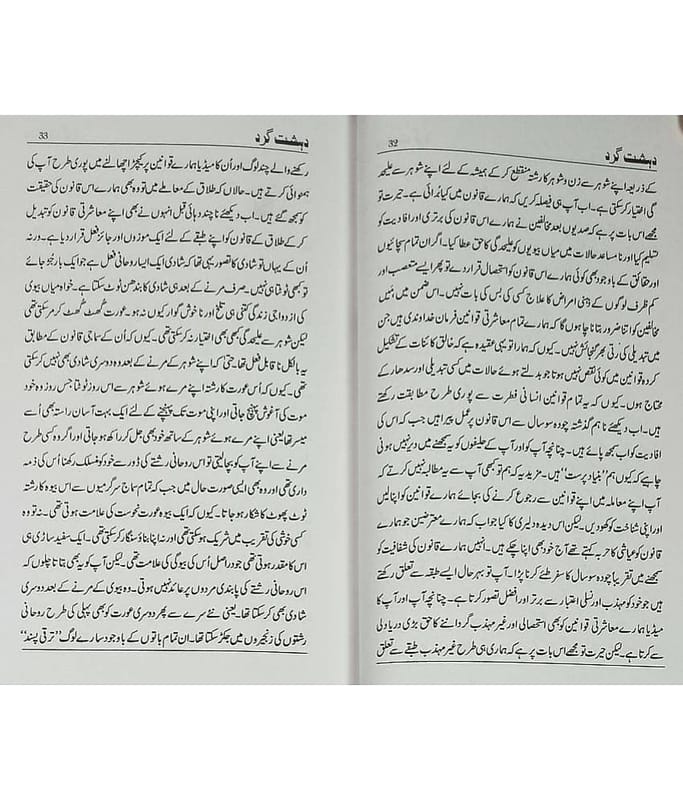 دہشت گرد
32
کے ذریعہ اپنے شوہر سے زن و شوہر کا رشتہ منقطع کر کے ہمیشہ کے لئے اپنے شوہر سے علیحد
گی اختیار کر سکتی ہے۔ اب آپ ہی فیصلہ کریں کہ ہمارے قانون میں کیا بُرائی ہے۔ حیرت تو
مجھے اس بات پر ہے کہ صدیوں بعد مخالفین نے ہمارے اس قانون کی برتری اور افادیت کو
تسلیم کیا اور نا مساعد حالات میں میاں بیویوں کو علیحدگی کا حق عطا کیا۔ اگر ان تمام سچائیوں
اور حقائق کے باوجود بھی کوئی ہمارے اس قانون کو استحصال قرار دے تو پھر ایسے متعصب اور
کم ظرف لوگوں کے ذہنی امراض کا علاج کسی کی بس کی بات نہیں۔ اس ضمن میں مَیں
مخالفین کو اتنا ضرور بتانا چاہوں گا کہ ہمارے تمام معاشرتی قوانین فرمان خداوندی ہیں جن
میں تبدیلی کی رتی بھر گنجائش نہیں۔ کیوں کہ ہمارا تو یہی عقیدہ ہے کہ خالق کائنات کے تشکیل
کردہ قوانین میں کوئی نقص نہیں ہوتا جو بدلتے ہوئے حالات میں کسی تبدیلی اور سدھار کے
محتاج ہوں۔ کیوں کہ یہ تمام قوانین انسانی فطرت سے پوری طرح مطابقت رکھتے
ہیں۔ اب دیکھئے نا ہم گذشتہ چودہ سو سال سے اس قانون پر عمل پیرا ہیں جب کہ اس کی
افادیت کو اب سمجھ پائے ہیں۔ چنانچہ آپ کو اور آپ کے حلیفوں کو یہ سمجھنے میں دیر نہیں ہونی
چاہیے کہ کیوں ہم ’’بنیاد پرست‘‘ ہیں۔ مزید یہ کہ ہم تو کبھی آپ سے یہ مطالبہ نہیں کرتے کہ
آپ اپنے معاملہ میں اپنے قوانین سے رجوع کرنے کی بجائے ہمارے قوانین کو اپنا لیں
اور اپنی شناخت کو کھودیں۔ لیکن اس دیدہ دلیری کا کیا جواب کہ ہمارے معترضین جو ہمارے
قانون کو عیاشی کا حربہ کہتے تھے آج خود بھی اپنا چکے ہیں۔ انہیں ہمارے قانون کی شفافیت کو
سمجھنے میں تقریباً چودہ سو سال کا سفر طئے کرنا پڑا۔ آپ تو بہر حال ایسے طبقہ سے تعلق رکھتے
ہیں جو خود کو مہذب اور نسلی اعتبار سے برتر اور افضل تصور کرتا ہے۔ چنانچہ آپ اور آپ کا
میڈیا ہمارے معاشرتی قوانین کو بھی استحصالی اور غیر مہذب گرداننے کا حق بڑی دریا دلی
سے کرتا ہے۔ لیکن حیرت تو مجھے اس بات پر ہے کہ ہماری ہی طرح غیر مہذب طبقے سے تعلق
دہشت گرد
33
رکھنے والے چند لوگ اور اُن کا میڈیا ہمارے قوانین پر کیچڑ اچھالنے میں پوری طرح آپ کی
ہمنوائی کرتے ہیں۔ حالاں کہ طلاق کے معاملے میں تو وہ بھی ہمارے اس قانون کی حقیقت
کو سمجھ گئے ہیں۔ اب دیکھئے نا چند دہائی قبل انہوں نے بھی اپنے معاشرتی قانون کو تبدیل
کر کے طلاق کے قانون کو اپنے طبقے کے لئے ایک موزوں اور جائز فعل قرار دیا ہے۔ ورنہ
اُن کے یہاں تو شادی کا تصور یہی تھا کہ شادی ایک ایسا روحانی فعل ہے جو ایک بار بندھ جائے
تو کبھی ٹوٹتا ہی نہیں۔ صرف مرنے کے بعد ہی شادی کا بندھن ٹوٹ سکتا ہے۔ خواہ میاں بیوی
کی ازدواجی زندگی کتنی ہی تلخ اور ناخوش گوار کیوں نہ ہو۔ عورت گھٹ گھٹ کر مر سکتی تھی
لیکن شوہر سے علیحدگی کبھی بھی اختیار نہ کر سکتی تھی۔ کیوں کہ اُن کے سماجی قانون کے مطابق
یہ بالکل ناقابل فعل تھا۔ حتیٰ کہ اپنے شوہر کے مرنے کے بعد وہ دوسری شادی بھی نہیں کر سکتی
تھی۔ کیوں کہ اُس عورت کا رشتہ اپنے مرے ہوئے شوہر سے اس روز ٹوٹتا جس روز وہ خود
موت کی آغوش پہنچ جاتی اور اپنی موت تک پہنچنے کے لئے ایک بہت آسان راستہ بھی اُسے
میسر تھا یعنی اپنے مرے ہوئے شوہر کے ساتھ خود بھی جل کر راکھ ہو جاتی اور اگر وہ کسی طرح
مرنے سے اپنے آپ کو بچا لیتی تو اس روحانی رشتے کی ڈور سے خود کو منسلک رکھنا اُس کی ذمہ
داری تھی اور وہ بھی ایسی صورت حال میں جب کہ تمام سماج سرگرمیوں سے اس بیوہ کا رشتہ
ٹوٹ پھوٹ کا شکار ہو جاتا۔ کیوں کہ ایک بیوہ عورت نحوست کی علامت ہوتی تھی۔ نہ تو وہ
کسی خوشی کی تقریب میں شریک ہو سکتی تھی اور نہ اپنا بناؤ سنگار کر سکتی تھی۔ ایک سفید ساڑی ہی
اس کا مقدر ہوتی تھی جو در اصل اُس کی بیوگی کی علامت تھی۔ لیکن آپ کو یہ بھی بتاتا چلوں کہ
اس روحانی رشتے کی پابندی مردوں پر عائد نہیں ہوتی۔ وہ بیوی کے مرنے کے بعد دوسری
شادی بھی کر سکتا تھا۔ یعنی نئے سرے سے پھر دوسری عورت کو بھی پہلی کی طرح روحانی
رشتوں کی زنجیروں میں جکڑ سکتا تھا۔ ان تمام باتوں کے باوجود سارے لوگ ’’ترقی پسند‘‘